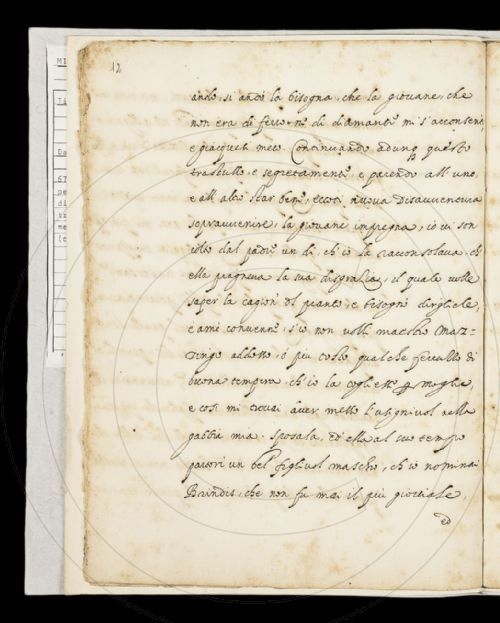 12
ando, si andò la bisogna, che la giovane, che
non era di ferro nè di diamante mi s'acconsentì,
e giacquesi meco. Continuando adunq questo
trastullo, e segretamente, e parendo all'uno,
e all'altro star bene, eccoti nuova disavventura
sopravvenire, la giovane impregna, io vi son
colto dal padre un dì, ch'io la racconsolava, ch'
ella piagneva la sua disgrazia, il quale volle
saper la cagion del pianto, e bisognò dirgliele,
e a me convenne, s'io non volli
addosso, o più tosto qualche ferruzzo di
buona tempera, ch'io la togliessi p moglie,
e così mi trovai aver messo l'usignuol nella
gabbia mia. Sposala, ed ella al suo tempo
partorì un bel figliuol maschio, ch'io nominai
Brandis, che non fu mai il più gioviale,
ed